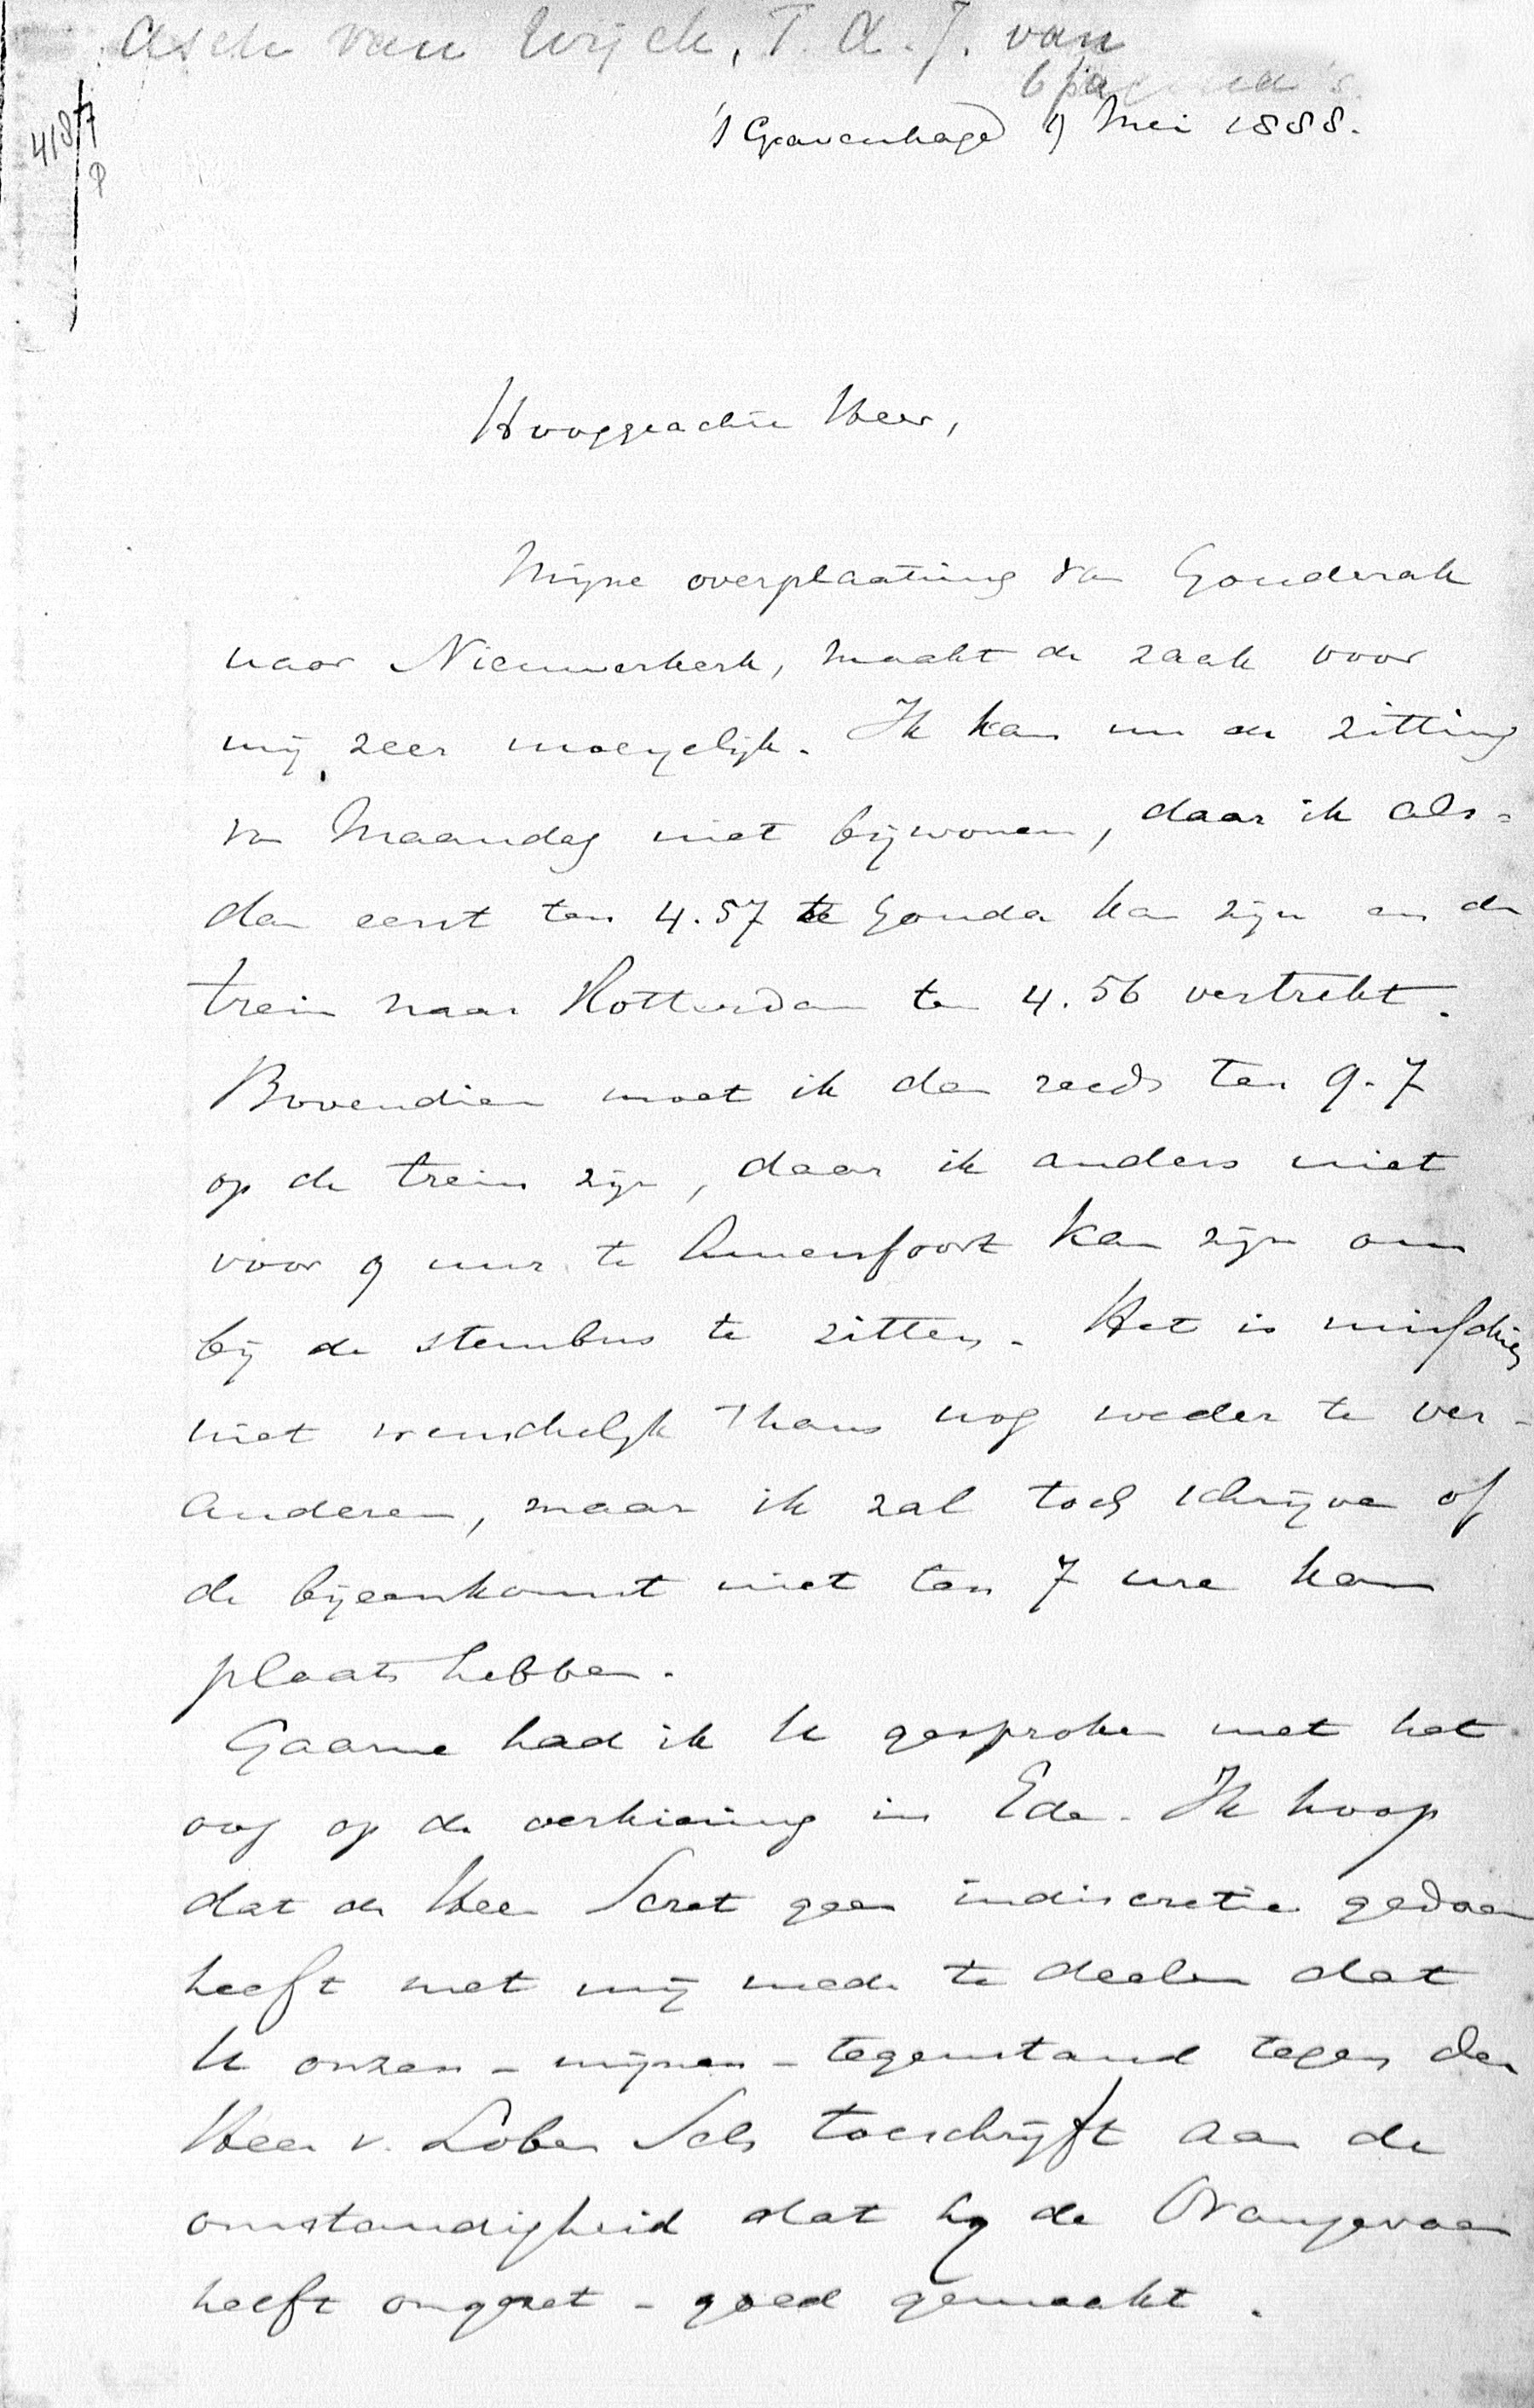 Asch van Wijck, T. A. J. van
6 pagina's.
4187
's Gravenhage 9 Mei 1888.
Hooggeachte Heer,
Mijne overplaatsing van Gouderak
naar Nieuwerkerk, maakt de zaak voor
mij zeer moeyelijk. Ik kan nu de zitting
van Maandag niet bijwonen, daar ik als-
dan eerst ten 4.57 te Gouda kan zijn en de
trein naar Rotterdam ten 4.56 vertrekt.
Bovendien moet ik dan reeds ten 9.7
op de trein zijn, daar ik anders niet
voor 9 uur te Amersfoort kan zijn om
bij de stembus te zitten. Het is misschien
niet wenschelijk thans nog weder te ver-
anderen, maar ik zal toch schrijven of
de bijeenkomst niet ten 7 ure kan
plaats hebben.
Gaarne had ik U gesproken met het
oog op de verkiezing in Ede. Ik hoop
dat de Heer geen indiscretie gedaan
heeft met mij mede te deelen dat
U onzen - mijnen - tegenstand tegen den
Heer v. Loben Sels toeschrijft aan de
omstandigheid dat hij de Oranjevaan
heeft omgezet - goed gemaakt.